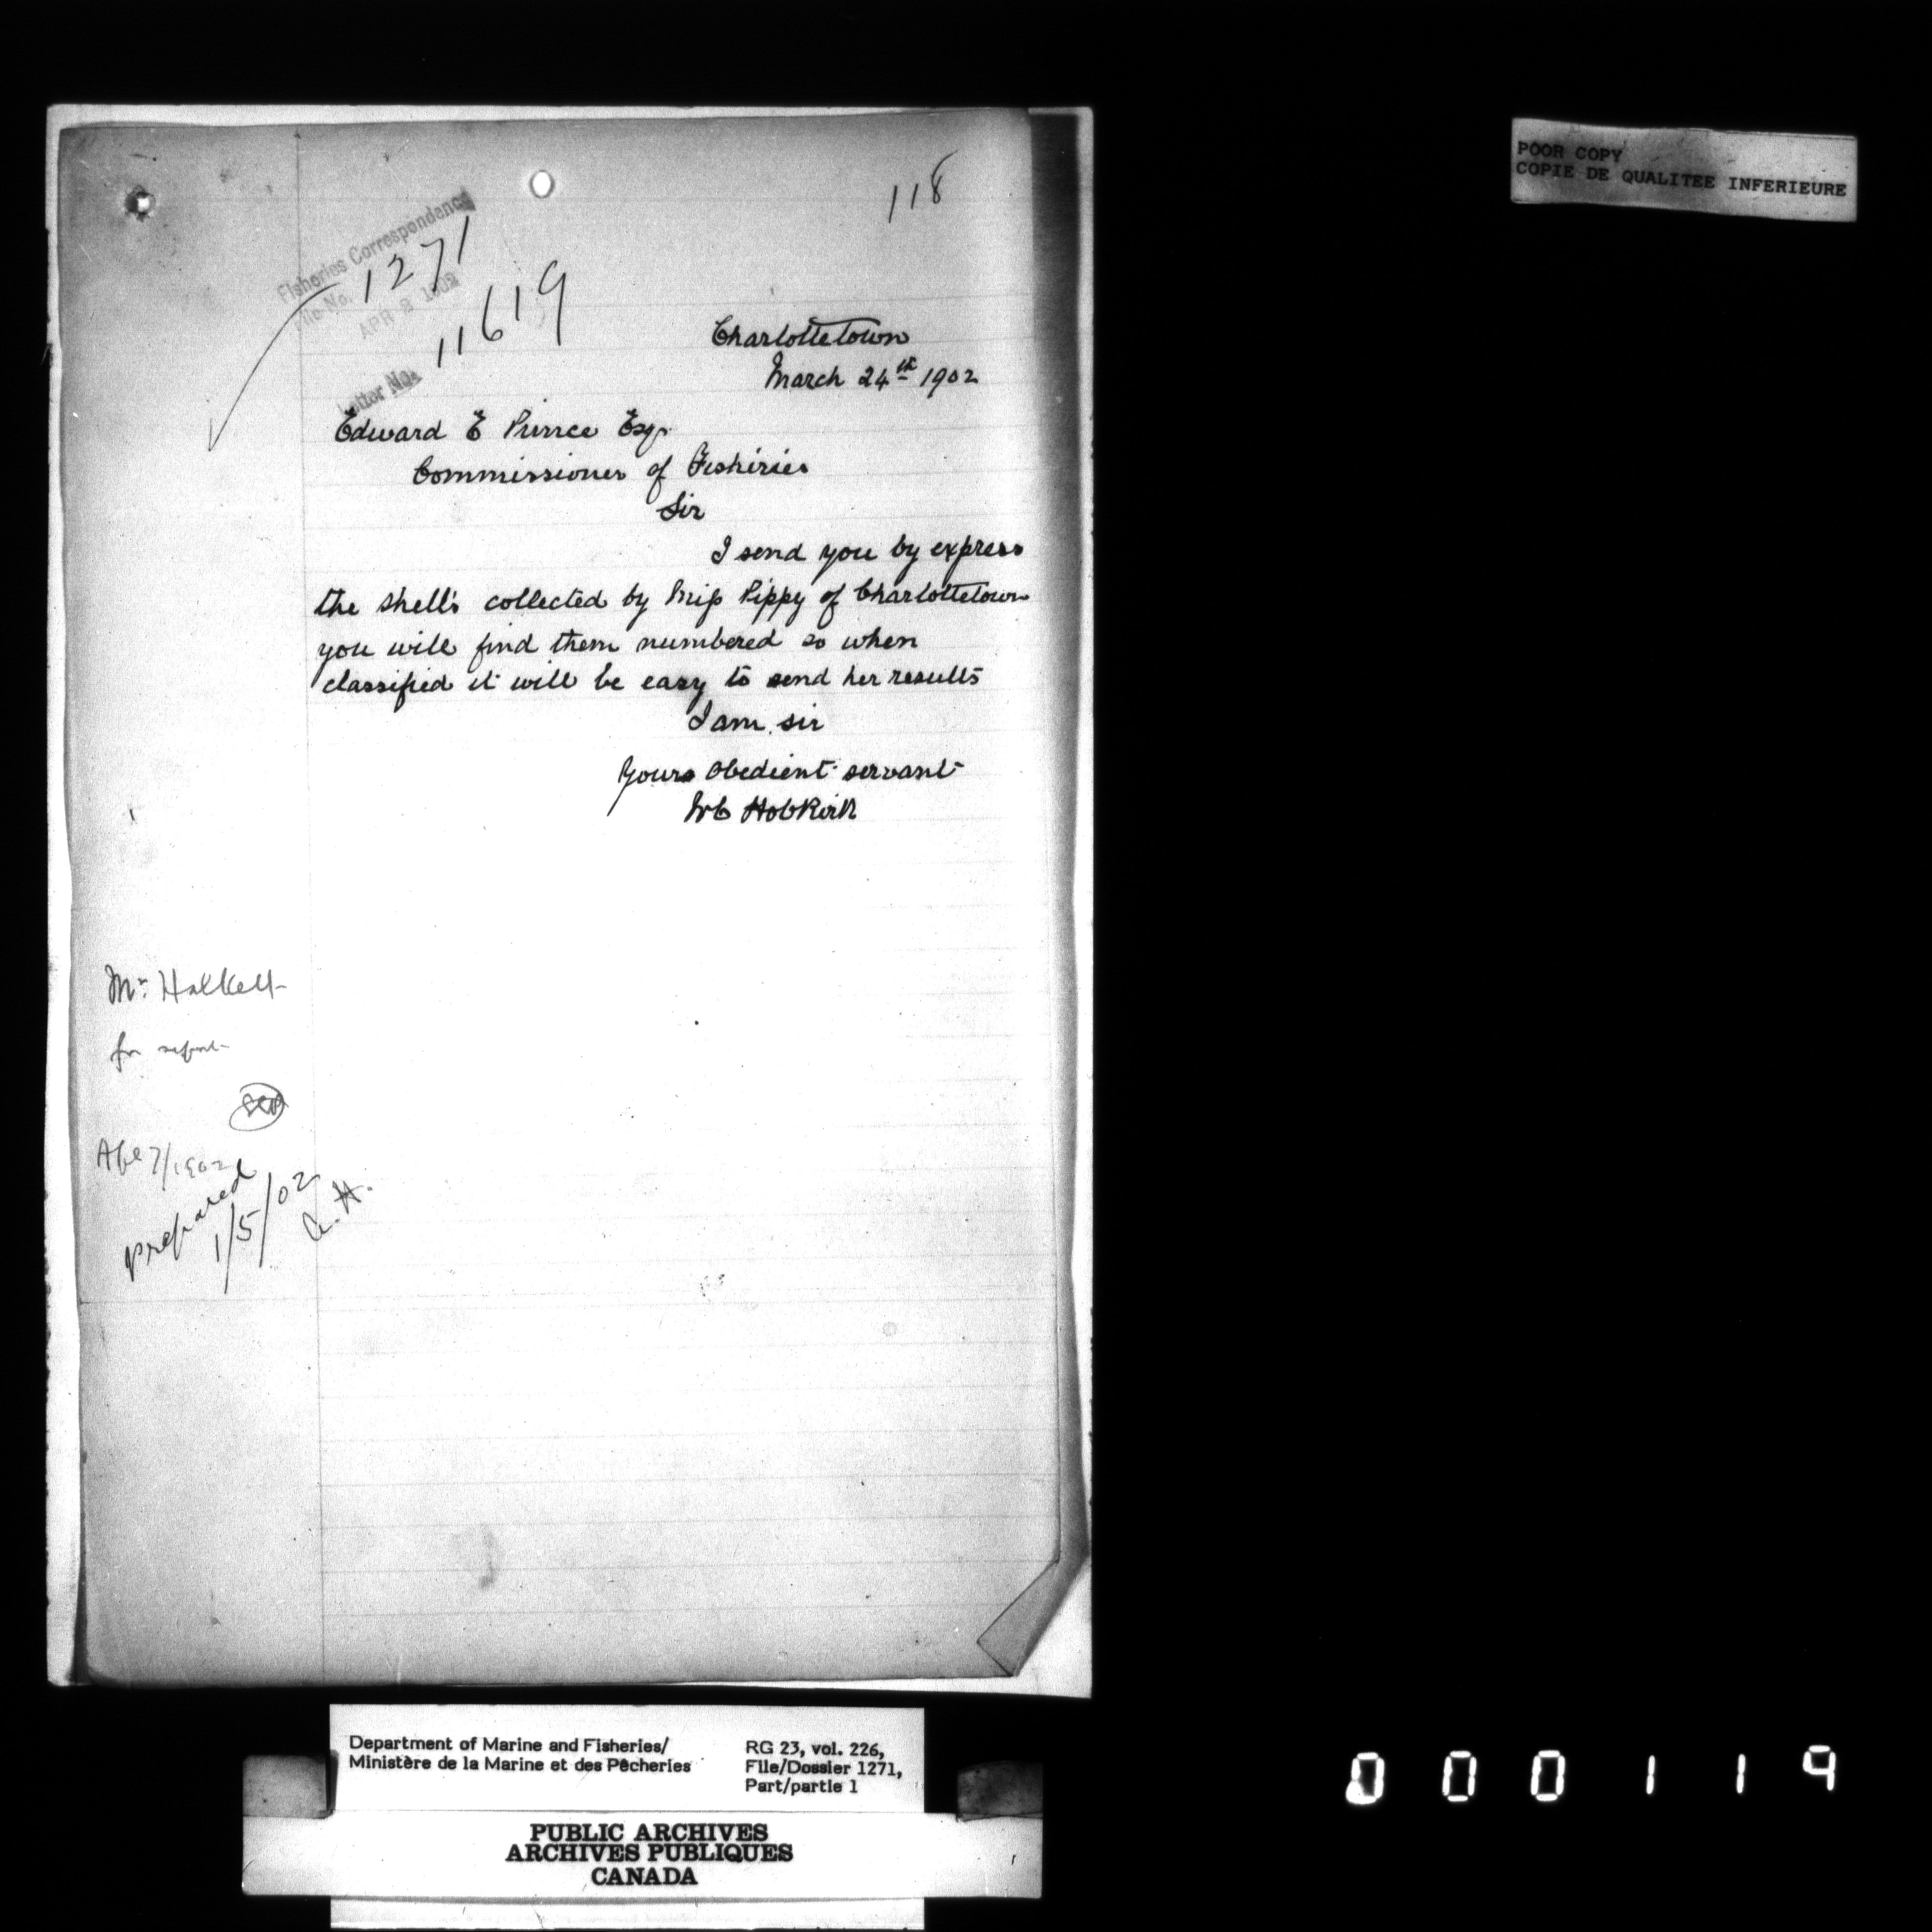 118
Fisheries Correspondence
File No. 1271
APR 8 1902
Letter No. 11619
Charlottetown
March 24th 1902
Edward E Prince Esqr
Commissioner of Fishiries
Sir
I send you by express
the shell's collected by Miss Pippy of Charlottetown
you will find them numbered so when
classified it will be easy to send her results
I am sir
Yours Obedient servant
Hobkirk
Mr. Halkett
for report
1902
Prepared
1/5/02
A. H.
POOR COPY
COPIE DE QUALITEE INFERIEURE
Department of Marine and Fisheries/
Ministère de la Marine et des Pêcheries
RG 23, vol. 226,
File/Dossier 1271,
Part/partie 1
PUBLIC ARCHIVES
ARCHIVES PUBLIQUES
CANADA
000119